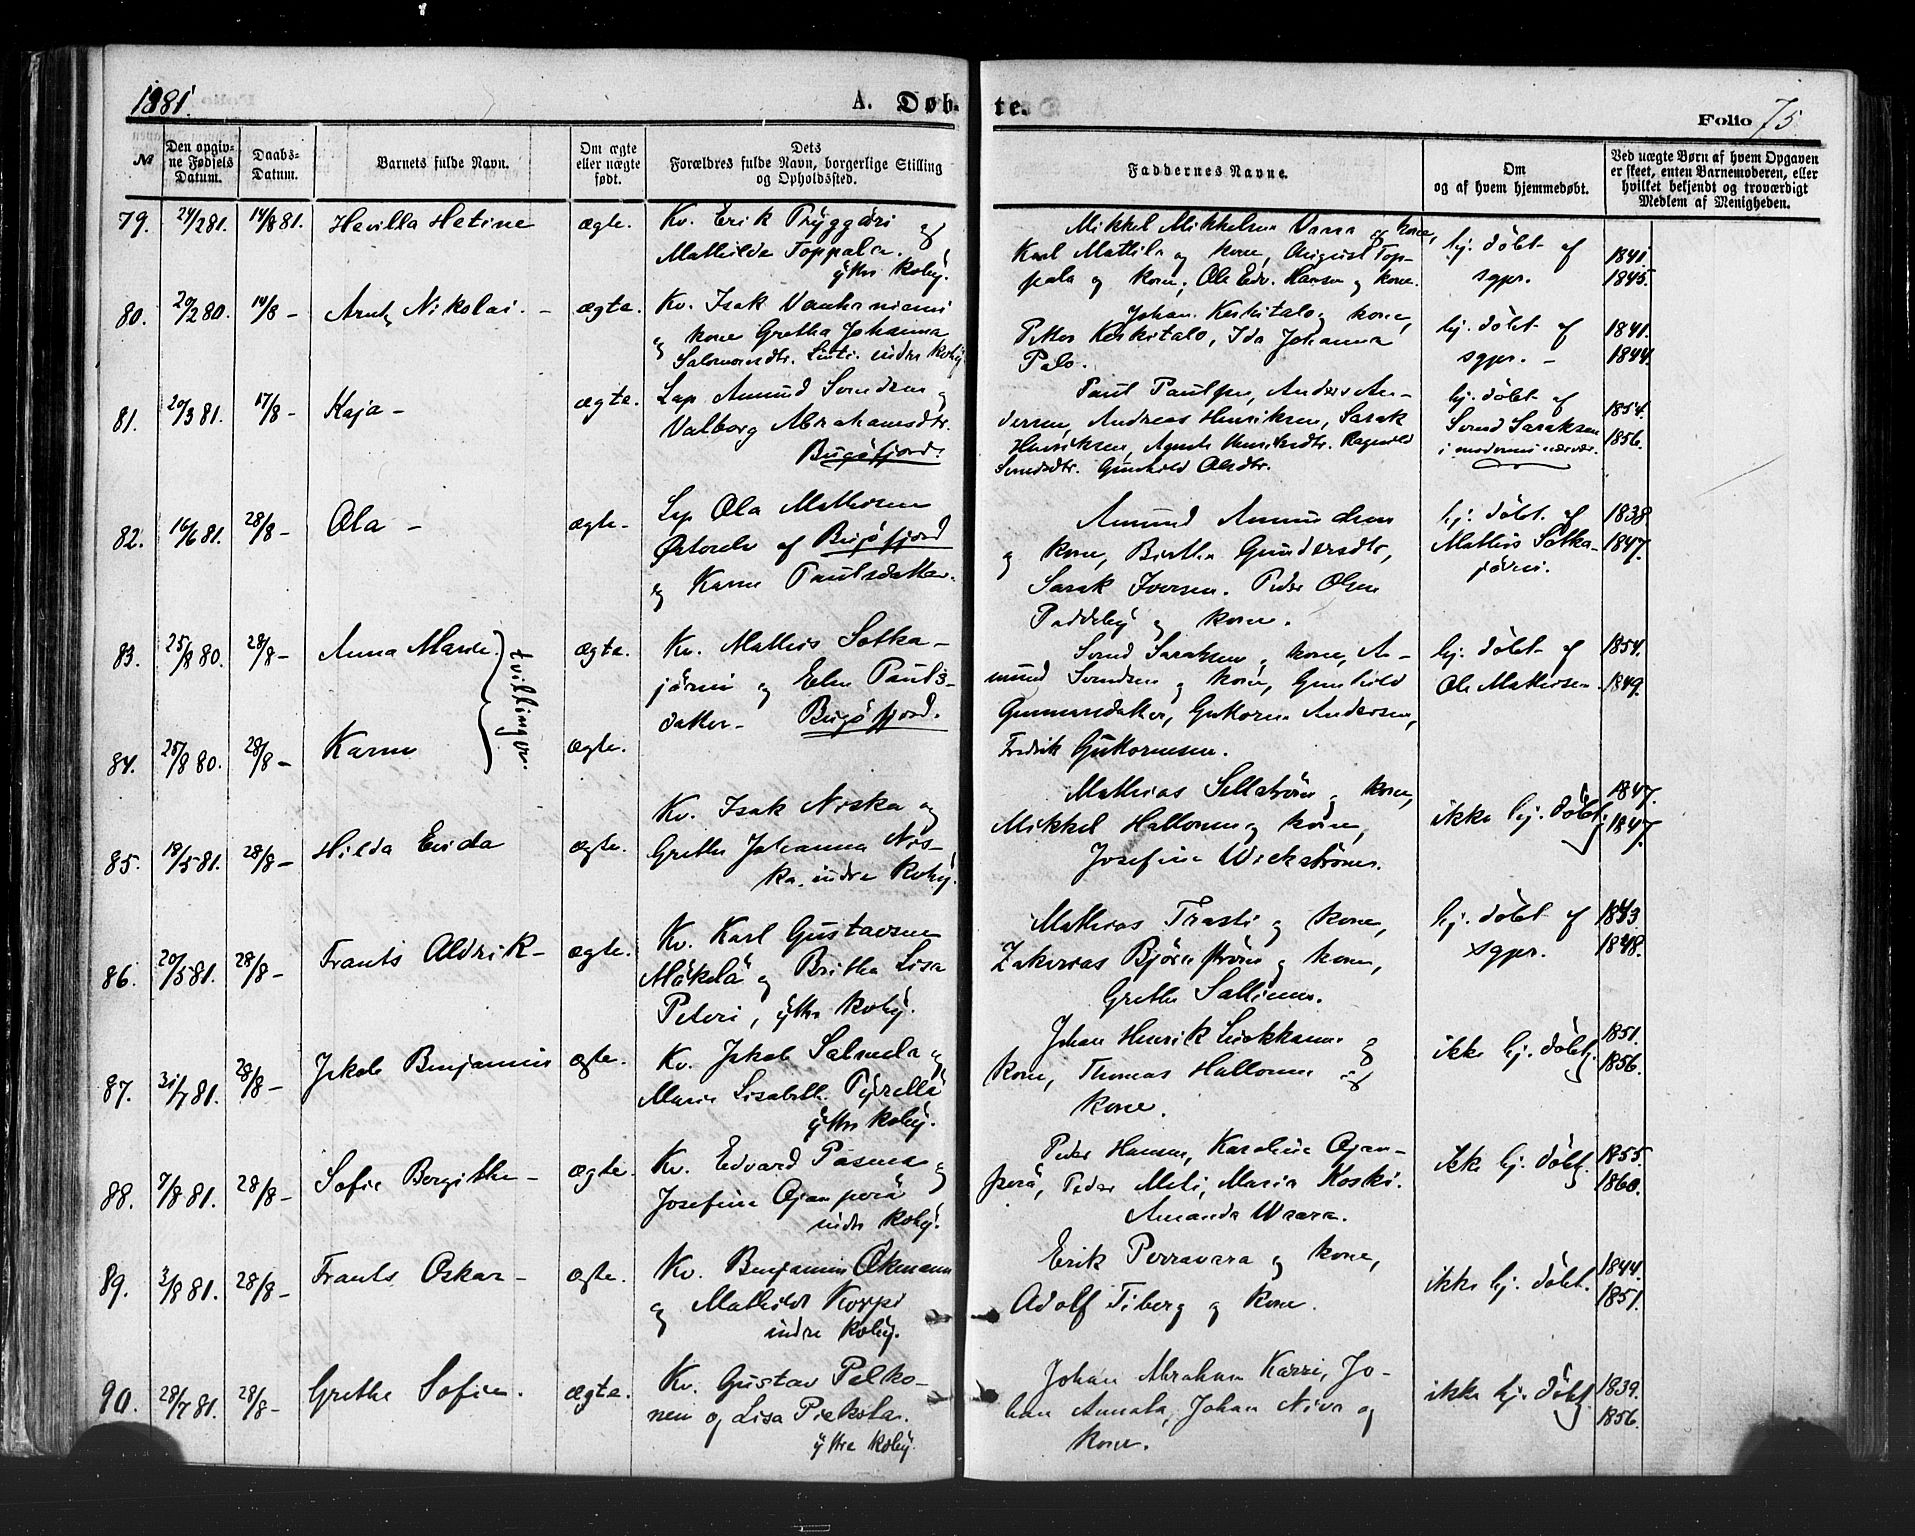 1881.
A. Døb-
te.
Folio 75
№
Den opgiv-
ne Fødsels
Datum.
Daabs-
Datum.
Barnets fulde Navn.
Om ægte
eller uægte
født.
Dets
Forældres fulde Navn, borgerlige Stilling
og Opholdssted.
Faddernes Navne.
Om
og af hvem hjemmedøbt.
Ved uægte Børn af hvem Opgaven
er skeet, enten Barnemoderen, eller
hvilket bekjendt og troværdigt
Medlem af Menigheden.
79. 24/2 81. 14/8 81. Hevilla Hetine ægte. Kv. Erik og
Mathilde Toppala.
ytre Koby.
Mikkel Mikkelsen Vara og kone,
Karl Mattila og kone, August Top-
pala og kone, Ole Edv. Hansen og kone.
hj. døbt af
sgpr.
1841.
1845.
80. 20/2 80. 14/8 - Nikolai. - ægte. Kv. Isak Vanhaniemi
og kone Gretha Johanna
Salomonsdtr. indre Koby
Johan Keskitalo og kone,
Peter Keskitalo, Ida Johanna
Palo.
hj. døbt af
sgpr. -
1841.
1844.
81. 20/3 81. 17/8 - Kaja - ægte. Lap Amund Svendsen og
Valborg Abrahamsdtr.
Bugøfjord.
Paul Paulsen, Anders An-
dersen, Andreas Henriksen, Sarak
Henriksen, Henriksdtr. Ragnild
Svendsdtr. Gunhild Olsdtr.
hj. døbt af
Svend Saraksen
i moderens nærvær.
1854.
1856.
82. 16/6 81. 28/8 - Ola - ægte. Lap Ola Mathisen
af Bugøfjord
og Karen Paulsdatter.
Amund Amundsen
og kone, Birthe Gundersdtr,
Sarak Iversen. Peder Olsen
Paddeby og kone.
hj. døbt af
Mathis Sotka-
järvi.
1838.
1847.
83. 25/8 80. 28/8 - Anna Marie. tvillinger. ægte. Kv. Mathis Sotka-
järvi og Elen Pauls-
datter - Bugøfjord.
Svend Saraksen og kone, A-
mund Svendsen og kone, Gunhild
Gunnarsdatter, Guttorm Andersen,
hj. døbt af
Ole Mathisen.
1854.
1849.
84. 25/8 80. 28/8 - Karen ægte.
Fredrik Guttormsen.
85. 18/5 81. 28/8 - Hilda Enda ægte. Kv. Isak Niska og
Grethe Johanna Nis-
ka. indre Koby.
Mathias Sellström og kone,
Mikkel Hallonen og kone,
Josefine Wickström.
ikke hj. døbt.
1847.
1847.
86. 20/5 81. 28/8 - Frants Aldrik - ægte. Kv. Karl Gustavsen
Mäkelä og Britha Lisa
Peteri, ytre Koby.
Mathias Trasti og kone,
Zakarias Björnström og kone,
Grethe Sallinen.
hj. døbt af
sgpr.
1843.
1848.
87. 31/7 81. 28/8 - Jakob Benjamin ægte. Kv. Jakob Salmela og
Marie Lisabeth Pyrellä
ytre Koby.
Johan Henrik og
kone, Thomas Hallonen og
kone.
ikke hj. døbt.
1851.
1856.
88. 7/8 81. 28/8 - Sofie Bergithe - ægte. Kv. Edvard Pasma og
Josefine Ojanperä
indre Koby.
Peder Hansen, Karoline Ojan-
perä, Peder Meli, Maria Koski.
Amanda Waara.
ikke hj. døbt.
1855.
1860.
89. 3/8 81. 28/8 - Frants Oskar - ægte. Kv. Benjamin Økmann
og Mathilde Korpi
indre Koby.
Erik Perravara og kone,
Adolf Fiberg og kone.
ikke hj. døbt.
1844.
1851.
90. 28/7 81. 28/8 - Grethe Sofie. ægte. Kv. Gustav Pelko-
nen og Lisa Pickola.
ytre Koby.
Johan Abraham Karri, Jo-
han Annala, Johan Niva og
kone.
ikke hj. døbt.
1839.
1856.